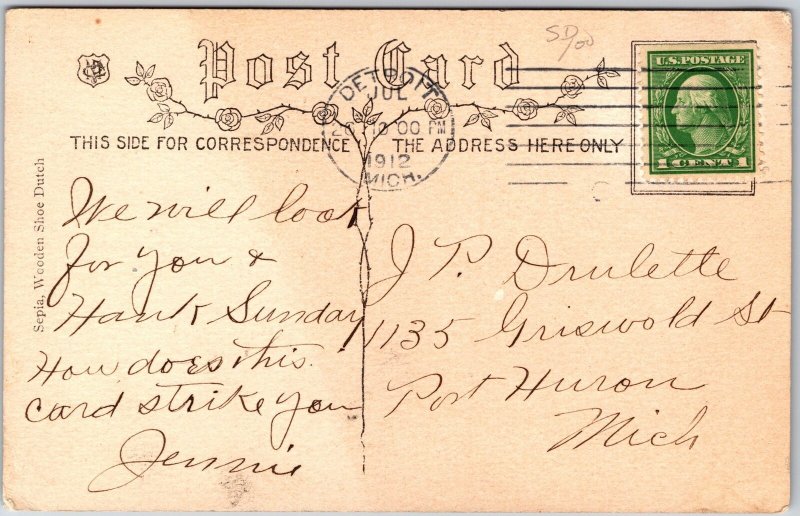 SD/00
Post Card
U.S. POSTAGE
1 CENT 1
DETROIT
JUL
10 00 PM
1912
MICH.
THIS SIDE FOR CORRESPONDENCE
THE ADDRESS HERE ONLY
Sepia, Wooden Shoe Dutch
We will look
for you &
Hank Sunday
How does this
card strike you
Jennie
J P. Drulette
1135 Griswold St
Port Huron
Mich